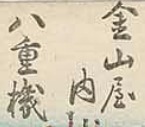 金山屋
内
八重機